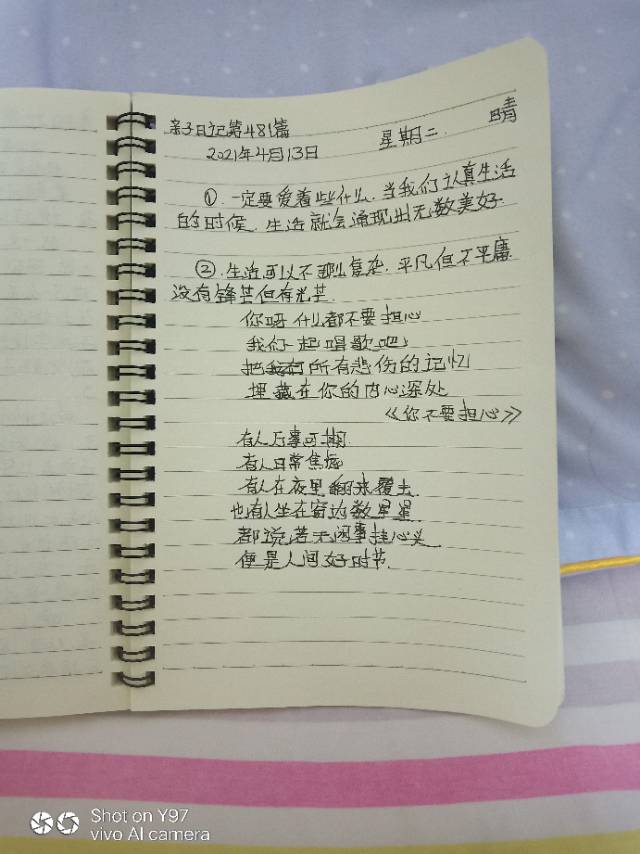 亲子日记第481篇
2021年4月13日 星期二 晴
①.一定要爱着些什么,当我们认真生活
的时候,生活就会涌现出无数美好.
②.生活可以不那么复杂,平凡但不平庸
没有锋芒但有光芒.
你呀什么都不要担心
我们一起唱歌吧!
把所有悲伤的记忆
埋藏在你的内心深处
《你不要担心》
有人万事可期
有人日常焦虑
有人在夜里翻来覆去
也有人坐在窗边数星星
都说若无闲事挂心头
便是人间好时节.
Shot on Y97
vivo AI camera